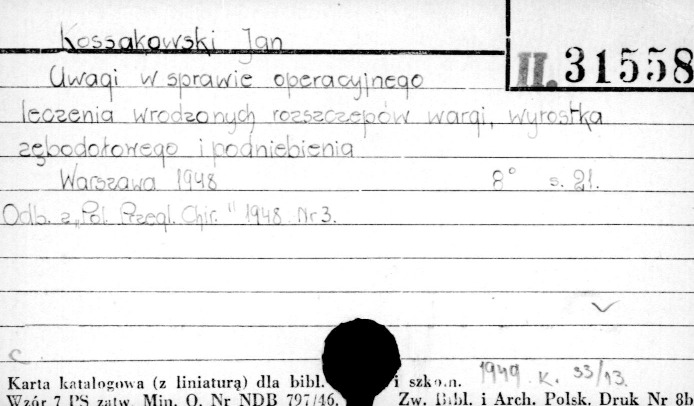 Kossakowski Jan
II. 31558
Uwagi w sprawie operacyjnego
leczenia wrodzonych rozszczepów wargi, wyrostka
zębodołowego i podniebienia
Warszawa 1948 8° s. 21.
Odb. z „Pol. Przegl. Chir." 1948 Nr 3.
1949 K. 33/13.
Karta katalogowa (z liniaturą) dla bibl. i szkoln.
Wzór 7 PS zatw. Min. O. Nr NDB 797/46. Zw. Bibl. i Arch. Polsk. Druk Nr 8b